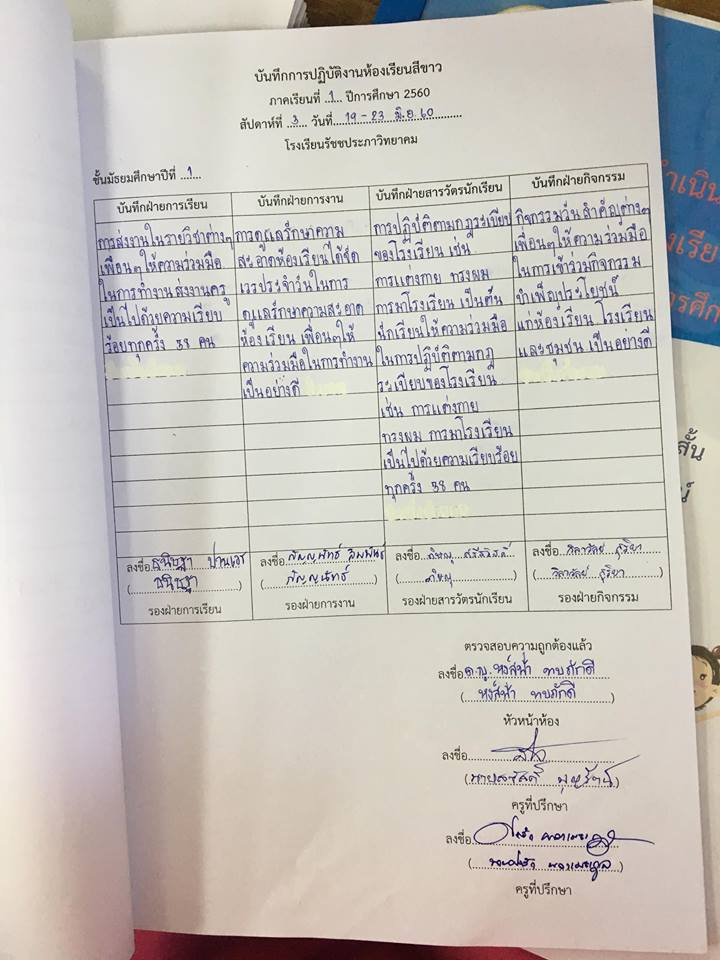 บันทึกการปฏิบัติงานห้องเรียนสีขาว
ภาคเรียนที่ ..1... ปีการศึกษา 2560
สัปดาห์ที่ ...3... วันที่.... 19 - 23 มิ.ย. 60
โรงเรียนรัชชประภาวิทยาคม
ชั้นมัธยมศึกษาปีที่ ..1....
บันทึกฝ่ายการเรียน
การส่งงานในรายวิชาต่างๆ
เพื่อนๆให้ความร่วมมือ
ในการทำงาน ส่งงานครู
เป็นไปด้วยความเรียบ
ร้อยทุกครั้ง 38 คน
บันทึกฝ่ายการงาน
การดูแลรักษาความ
สะอาดห้องเรียนได้จัด
เวรประจำวันในการ
ดูแลรักษาความสะอาด
ห้องเรียน เพื่อนๆให้
ความร่วมมือในการทำงาน
เป็นอย่างดี
บันทึกฝ่ายสารวัตรนักเรียน
การปฏิบัติตามกฎระเบียบ
ของโรงเรียน เช่น
การแต่งกาย ทรงผม
การมาโรงเรียน เป็นต้น
นักเรียนให้ความร่วมมือ
ในการปฏิบัติตามกฎ
ระเบียบของโรงเรียน
เช่น การแต่งกาย
ทรงผม การมาโรงเรียน
เป็นไปด้วยความเรียบร้อย
ทุกครั้ง 38 คน
บันทึกฝ่ายกิจกรรม
กิจกรรมวันสำคัญต่างๆ
เพื่อนๆให้ความร่วมมือ
ในการเข้าร่วมกิจกรรม
บำเพ็ญประโยชน์
แก่ห้องเรียน โรงเรียน
และชุมชน เป็นอย่างดี
ลงชื่อ ธนิษฐา
(ธนิษฐา)
รองฝ่ายการเรียน
ลงชื่อ
(กัญญนัทธ์)
รองฝ่ายการงาน
ลงชื่อ
รองฝ่ายสารวัตรนักเรียน
ลงชื่อ วิลาวัลย์ สุริยา
(วิลาวัลย์ สุริยา)
รองฝ่ายกิจกรรม
ตรวจสอบความถูกต้องแล้ว
ลงชื่อ ด.ญ. หงส์ฟ้า ทบภักดี
(หงส์ฟ้า ทบภักดี)
หัวหน้าห้อง
ลงชื่อ
ครูที่ปรึกษา
ลงชื่อ
ครูที่ปรึกษา